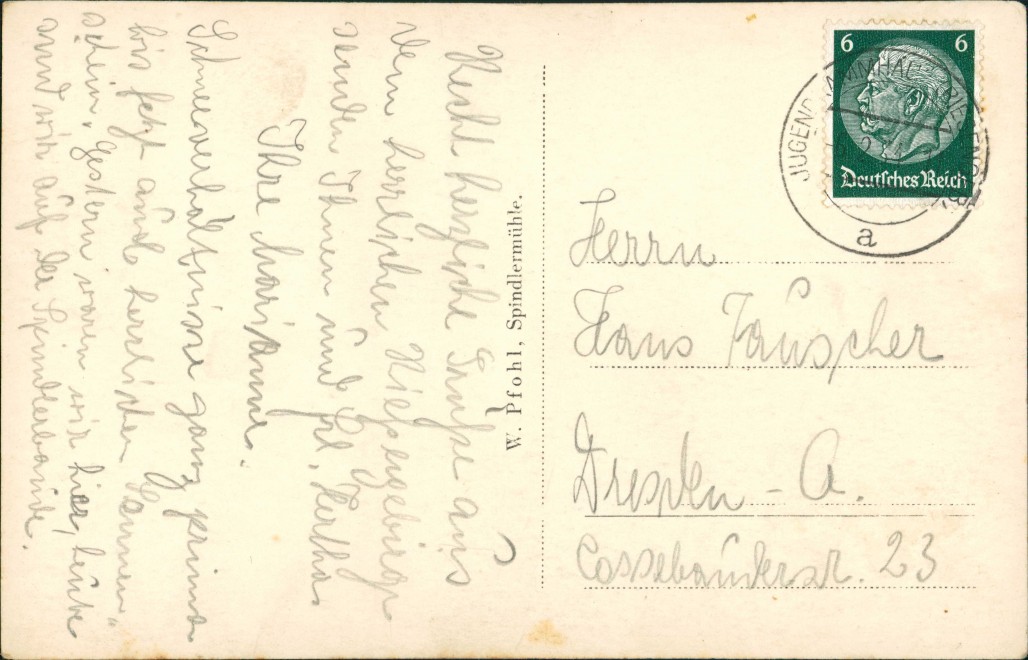 Recht herzliche Grüße aus
dem herrlichen Riesengebirge
senden Ihnen und Frl. Hertha
Ihre Marianne.
Schneeverhältnisse ganz prima
bis jetzt auch herrlichen Sonnen"
schein, gestern waren wir hier, heute
sind wir auf der Spindlerbaude.
W. Pfohl, Spindlermühle.
6 6
Deutsches Reich
JUGENDKAMMHAUS
a
Herrn
Hans Tauscher
Dresden - A.
Cossebauderstr. 23